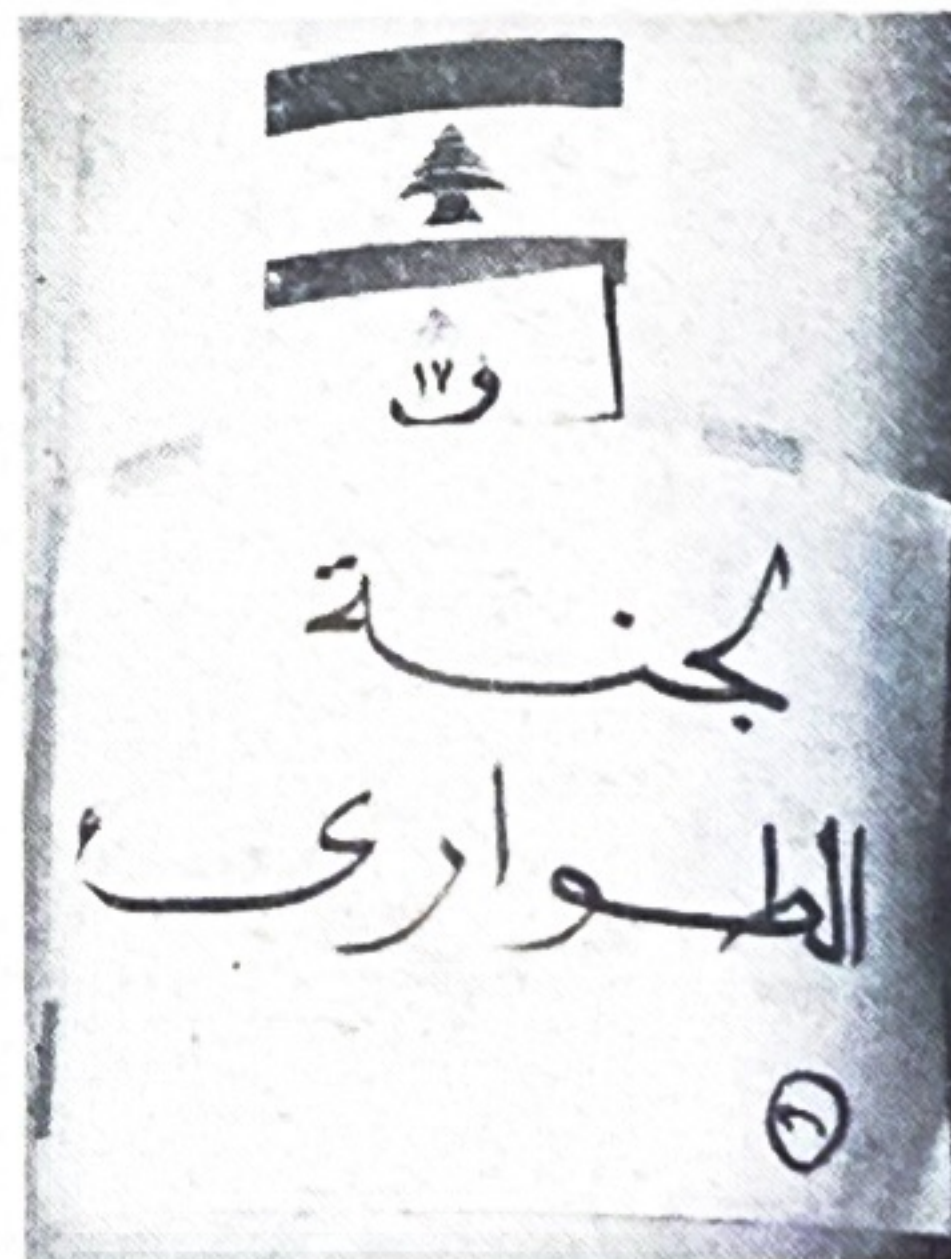 ف ١٧
لجنة
الطوارى